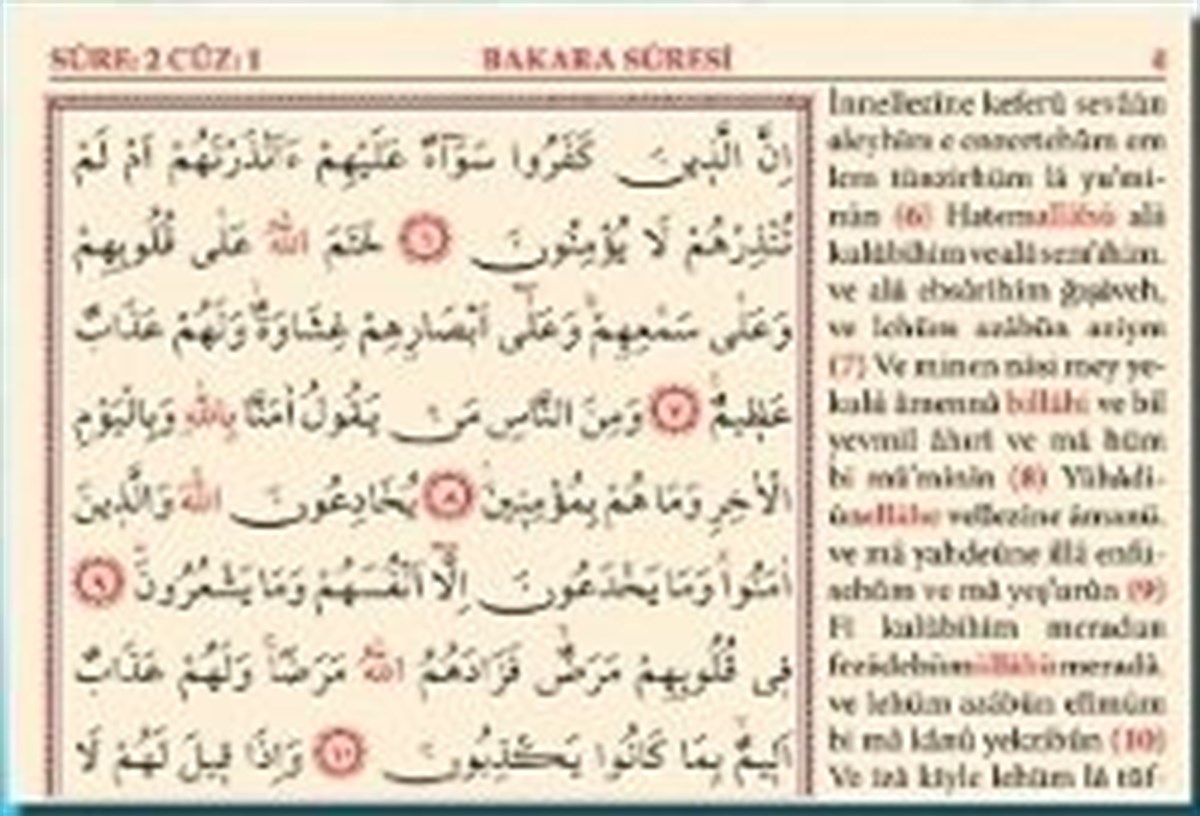 SÛRE: 2 CÜZ: 1
BAKARA SÛRESİ
اِنَّ الَّذٖينَ كَفَرُوا سَوَٓاءٌ عَلَيْهِمْ ءَاَنْذَرْتَهُمْ اَمْ لَمْ
تُنْذِرْهُمْ لَا يُؤْمِنُونَ ٦ خَتَمَ اللّٰهُ عَلٰى قُلُوبِهِمْ
وَعَلٰى سَمْعِهِمْۜ وَعَلٰٓى اَبْصَارِهِمْ غِشَاوَةٌۘ وَلَهُمْ عَذَابٌ
عَظٖيمٌ ٧ وَمِنَ النَّاسِ مَنْ يَقُولُ اٰمَنَّا بِاللّٰهِ وَبِالْيَوْمِ
الْاٰخِرِ وَمَا هُمْ بِمُؤْمِنٖينَۘ ٨ يُخَادِعُونَ اللّٰهَ وَالَّذٖينَ
اٰمَنُواۚ وَمَا يَخْدَعُونَ اِلَّٓا اَنْفُسَهُمْ وَمَا يَشْعُرُونَۜ ٩
فٖى قُلُوبِهِمْ مَرَضٌۙ فَزَادَهُمُ اللّٰهُ مَرَضًاۚ وَلَهُمْ عَذَابٌ
اَلٖيمٌۙ بِمَا كَانُوا يَكْذِبُونَ ١٠ وَاِذَا قٖيلَ لَهُمْ لَا
İnnellezîne keferû sevâün
aleyhim e enzertehüm em
lem tünzirhüm lâ yu'mi-
nûn (6) Hatemallâhü alâ
kulûbihim ve alâ sem'ihim,
ve alâ ebsârihim ğışâveh,
ve lehüm azâbün azıym
(7) Ve minen nâsi mey ye-
kulü âmennâ billâhi ve bil
yevmil âhıri ve mâ hüm
bi mü'minîn (8) Yühâdi-
ûnellâhe vellezîne âmenû,
ve mâ yahdeûne illâ enfü-
sehüm ve mâ yeş'urûn (9)
Fî kulûbihim meradun
fezâdehümüllâhü meradâ,
ve lehüm azâbün elîmüm
bi mâ kânû yekzibûn (10)
Ve izâ kıyle lehüm lâ tüf-